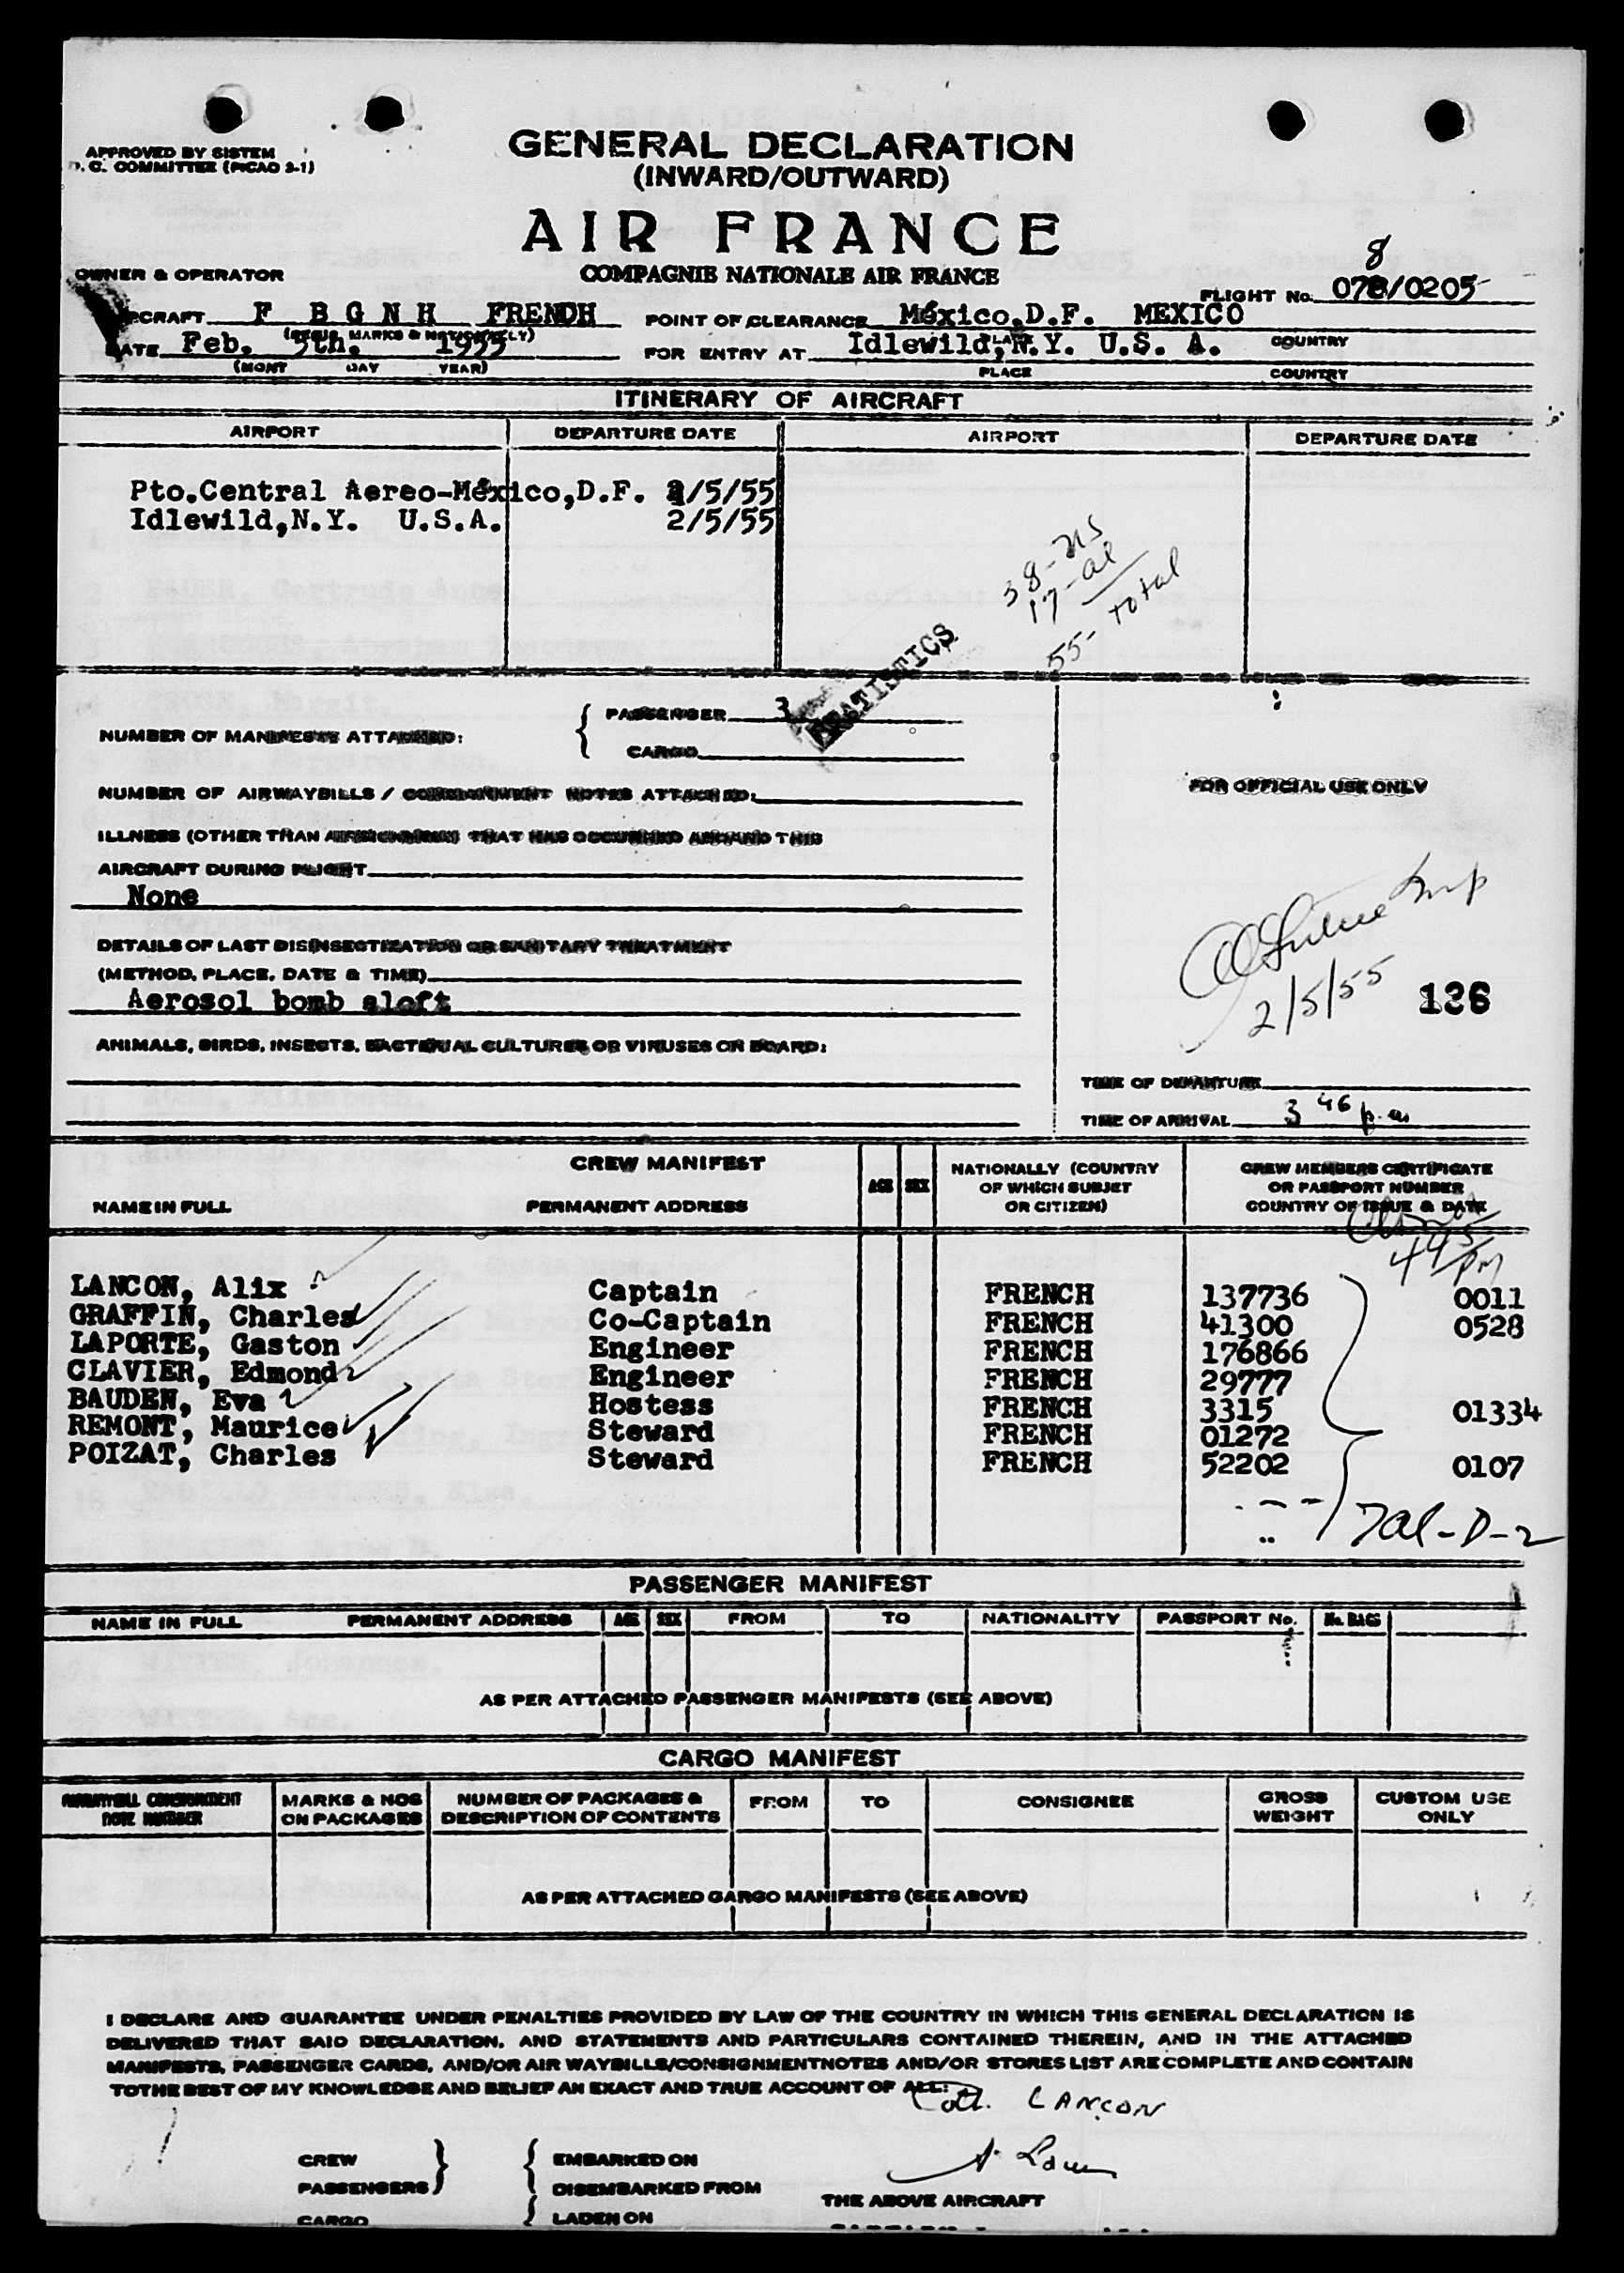 APPROVED BY SISTEM
C. COMMITTEE (PICAO 2-1)
GENERAL DECLARATION
(INWARD/OUTWARD)
AIR FRANCE
COMPAGNIE NATIONALE AIR FRANCE
OWNER & OPERATOR
8
FLIGHT No. 078/0205
AIRCRAFT F B G N H FRENCH
POINT OF CLEARANCE México,D.F. MEXICO
DATE Feb. 5th. 1955
FOR ENTRY AT Idlewild, N.Y. U.S. A.
COUNTRY
(MONT DAY YEAR)
PLACE COUNTRY
ITINERARY OF AIRCRAFT
AIRPORT DEPARTURE DATE AIRPORT DEPARTURE DATE
Pto.Central Aereo-México,D.F. 2/5/55
Idlewild,N.Y. U.S.A. 2/5/55
38-
17-al
55- total
STATISTICS
NUMBER OF MANIFESTS ATTACHED:
PASSENGER 3
CARGO
NUMBER OF AIRWAYBILLS / CONSIGNMENT NOTES ATTACHED:
FOR OFFICIAL USE ONLY
ILLNESS (OTHER THAN AIRSICKNESS) THAT HAS OCCURRED ABOARD THIS
AIRCRAFT DURING FLIGHT
None
DETAILS OF LAST DISINSECTIZATION OR SANITARY TREATMENT
(METHOD, PLACE, DATE & TIME)
Aerosol bomb aloft
2/5/55 136
ANIMALS, BIRDS, INSECTS, BACTERIAL CULTURES OR VIRUSES ON BOARD:
TIME OF DEPARTURE
TIME OF ARRIVAL 3 46 p.m
CREW MANIFEST
NAME IN FULL PERMANENT ADDRESS AGE SEX
NATIONALLY (COUNTRY
OF WHICH SUBJET
OR CITIZEN)
CREW MEMBERS CERTIFICATE
OR PASSPORT NUMBER
COUNTRY OF ISSUE & DATE
445 PM
LANCON, Alix Captain FRENCH 137736 0011
GRAFFIN, Charles Co-Captain FRENCH 41300 0528
LAPORTE, Gaston Engineer FRENCH 176866
CLAVIER, Edmond Engineer FRENCH 29777
BAUDEN, Eva Hostess FRENCH 3315 01334
REMONT, Maurice Steward FRENCH 01272
POIZAT, Charles Steward FRENCH 52202 0107
7al-D-2
PASSENGER MANIFEST
NAME IN FULL PERMANENT ADDRESS AGE SEX FROM TO NATIONALITY PASSPORT No. No. BAGS
AS PER ATTACHED PASSENGER MANIFESTS (SEE ABOVE)
CARGO MANIFEST
AIRWAYBILL CONSIGNMENT
NOTE NUMBER
MARKS & NOS
ON PACKAGES
NUMBER OF PACKAGES &
DESCRIPTION OF CONTENTS
FROM TO CONSIGNEE
GROSS
WEIGHT
CUSTOM USE
ONLY
AS PER ATTACHED CARGO MANIFESTS (SEE ABOVE)
I DECLARE AND GUARANTEE UNDER PENALTIES PROVIDED BY LAW OF THE COUNTRY IN WHICH THIS GENERAL DECLARATION IS
DELIVERED THAT SAID DECLARATION, AND STATEMENTS AND PARTICULARS CONTAINED THEREIN, AND IN THE ATTACHED
MANIFESTS, PASSENGER CARDS, AND/OR AIR WAYBILLS/CONSIGNMENTNOTES AND/OR STORES LIST ARE COMPLETE AND CONTAIN
TOTHE BEST OF MY KNOWLEDGE AND BELIEF AN EXACT AND TRUE ACCOUNT OF ALL:
LANCON
CREW
PASSENGERS
CARGO
EMBARKED ON
DISEMBARKED FROM
LADEN ON
THE ABOVE AIRCRAFT